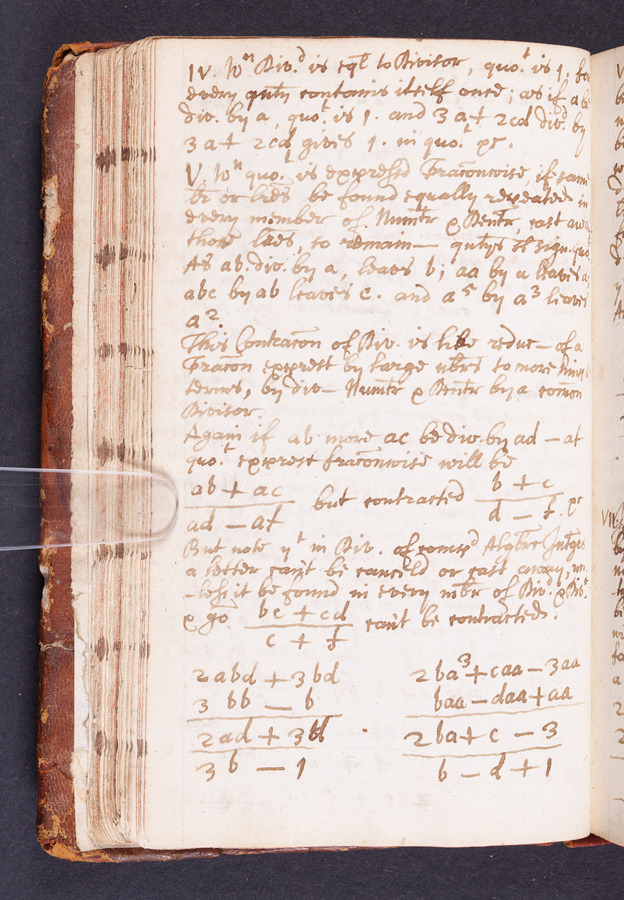 IV. Wn Div.d is eql to Divisor, quo.t is 1; for
every qnty contains itself once; as if a be
div. by a, quo.t is 1. and 3a + 2cd div.d by
3a + 2cd gives 1. in quo.t &c.
V. Wn quo.t is expressd Fraconwise, if same
lr or lres be found equally repeated in
every member of Numr & Denr, cast away
those lres, so remain— qntys is sign. quo.
As ab. div. by a, leaves b; aa by a leaves a;
abc by ab leaves c. and a5 by a3 leaves
a2.
This Contracon of Div. is like reduc— of a
Fracon exprest by large nbrs to more
terms, by div— Numr & Denr by a comon
Divisor.
Again if ab more ac be div. by ad — af
quo.t exprest fraconwise will be
ab + ac but contracted b + c
ad — af d — f. &c
But note yt in Div. of compd Algbrc Integrs
a letter can't be canceld or cast away, un-
-less it be found in every mbr of Div.d & Divr.
& so bc + cd can't be contracted.
c + f
2abd + 3bd 2ba3 + caa — 3aa
3bb — b baa — daa + aa
2ad + 3d 2ba + c — 3
3b — 1 b — d + 1
VII.